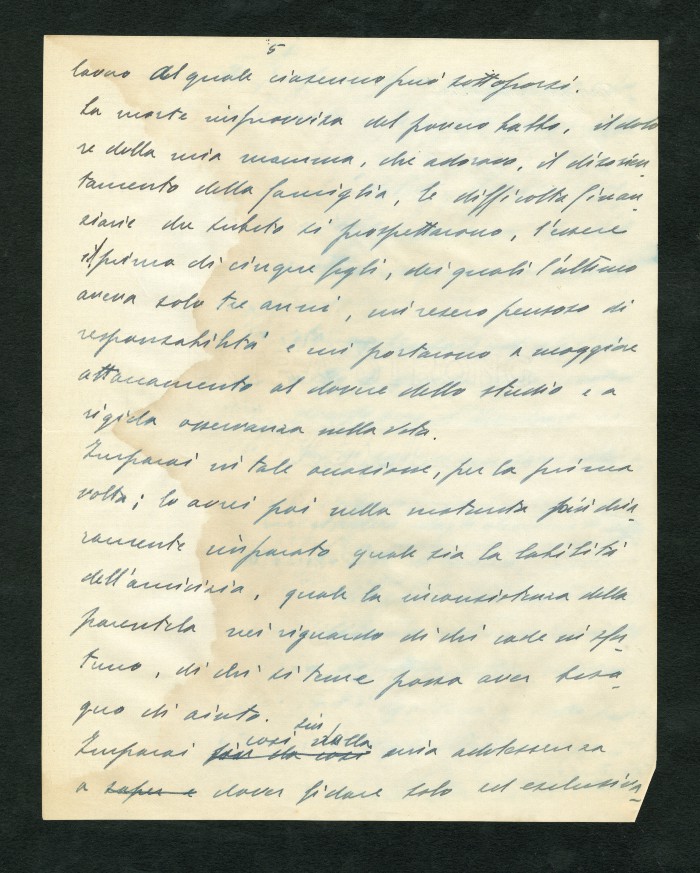 5
lavoro al quale ciascuno può sottoporsi.
La morte improvvisa del povero babbo, il dolo
re della mia mamma, che adoravo, il disorien-
tamento della famiglia, le difficoltà finan-
ziarie che subito si prospettarono, l'essere
il primo di cinque figli, dei quali l'ultimo
aveva solo tre anni, mi resero pensoso di
responsabilità e mi portarono a maggiore
attaccamento al dovere dello studio e a
rigida osservanza nella vita.
Imparai in tale occasione, per la prima
volta; lo avrei poi nella maturità più chia-
ramente imparato quale sia la labilità
dell'amicizia, quale la inconsistenza della
parentela nei riguardo di chi cade in sfor-
tuna, di chi si teme possa aver biso-
gno di aiuto.
sin
così dalla
Imparai fin da così mia adolescenza
a saper e dover fidare solo ed esclusiva-